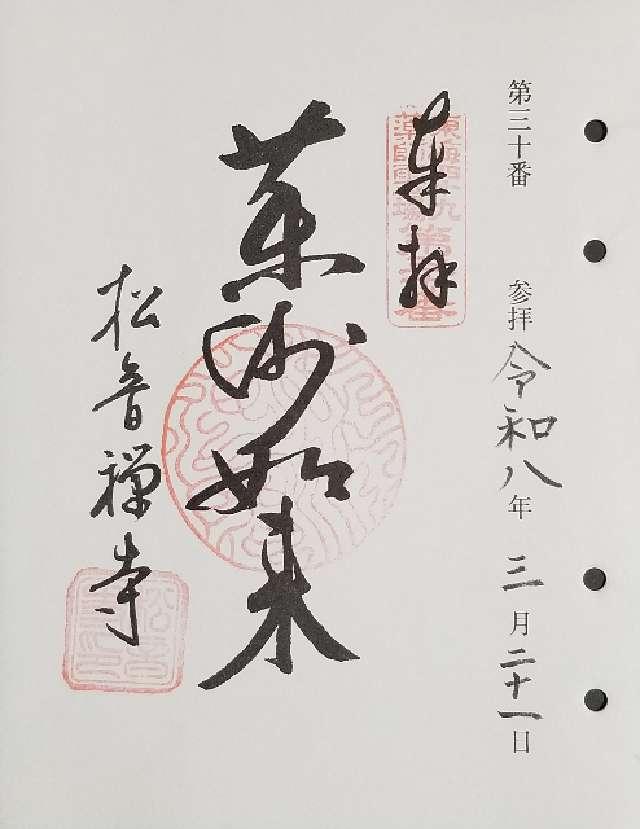 第三十番 参拝 令和八年 三月二十一日
奉拝
薬師如来
松音禅寺